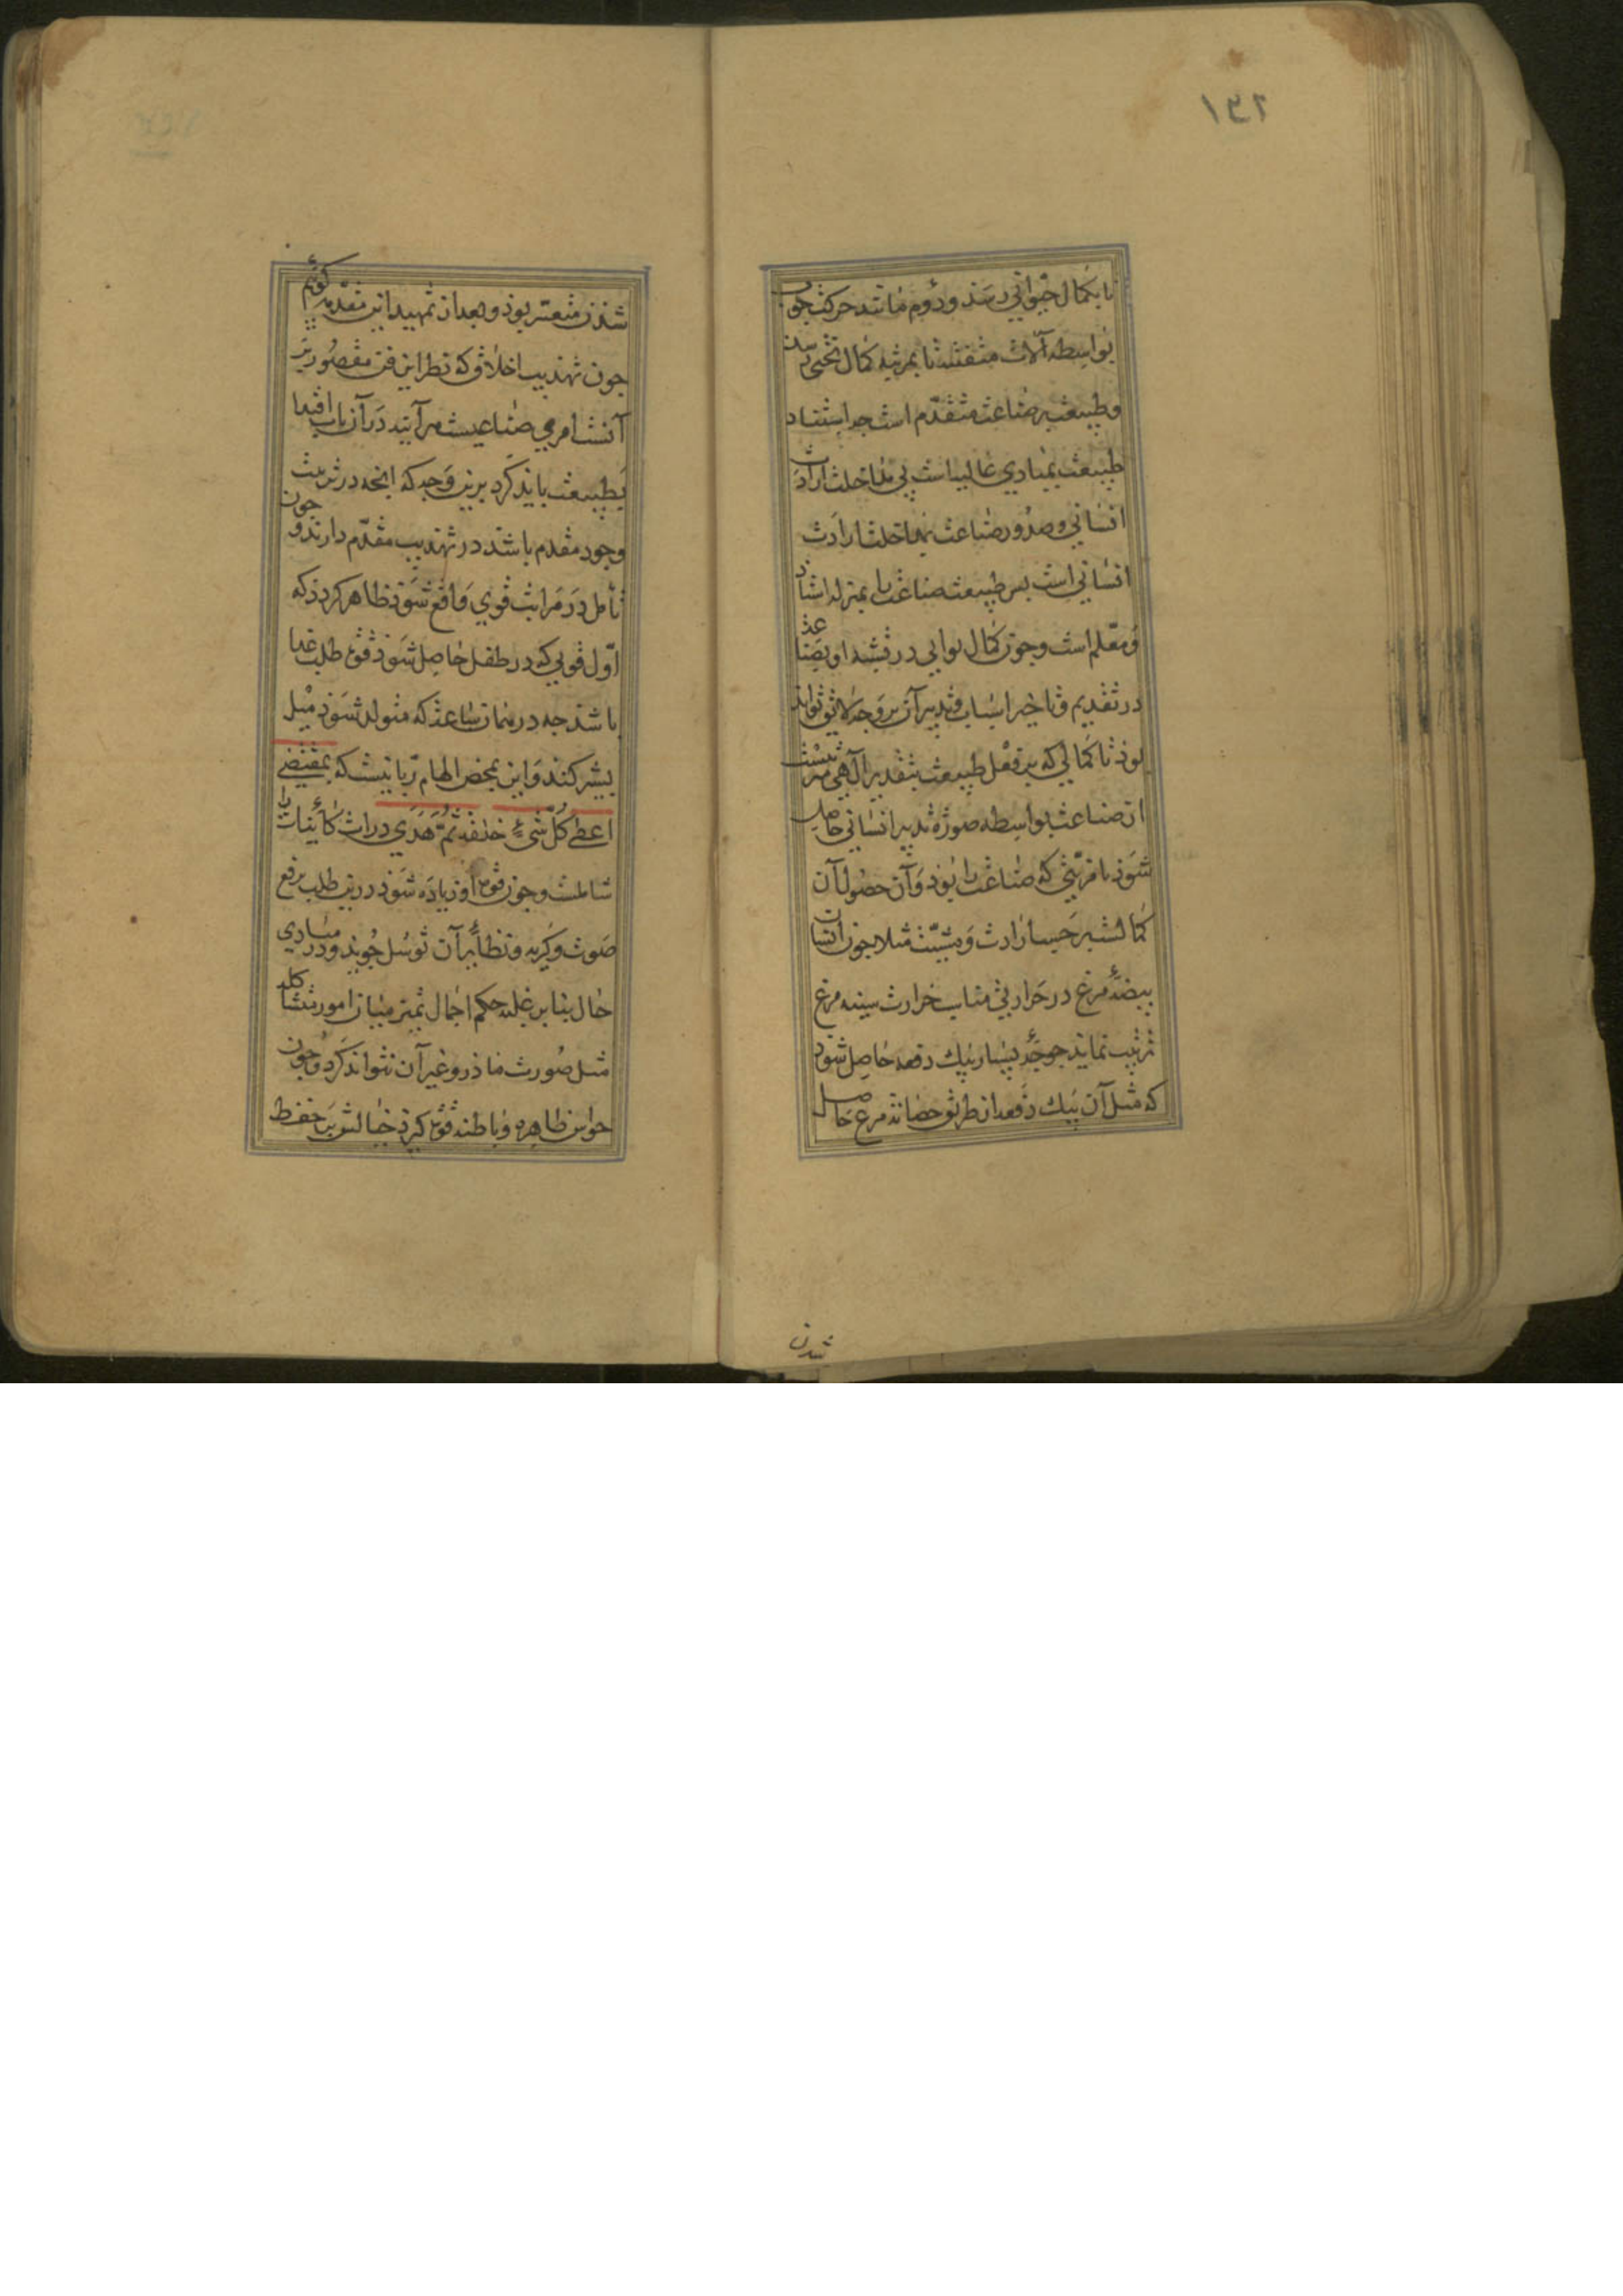 ١٣٢
تا بكمال حيواني رسد ودوم مانند حركت چوب
بواسطه آلات متفننه تا بمرتبه كمال تختي رسد
وطبيعت بر صناعت متقدم است چه استناد
طبيعت بمبادي عاليه است بي مداخلت ارادت
انساني وصدور صناعت بمداخلت ارادت
انساني است پس طبيعت صناعت را بمنزله استاد
ومعلم است وچون كمال ثواني در تشبه او بصناعت
در تقديم وتاخير اسباب وتدبير آن بر وجه لايق تواند
بود تا كمالي كه بر فعل طبيعت بتقدير آلهي مترتبست
از صناعت بواسطه صوره تدبير انساني حاصل
شود با مزيتي كه صناعت را بود وآن حصول آن
كمالست بر حسب ارادت ومشيت مثلا چون انسان
بيضهٔ مرغ در حرارتي مناسب حرارت سينه مرغ
ترتيب نمايد جوجهٔ بسيار بيك دفعه حاصل شود
كه مثل آن بيك دفعه از طريق حضانه مرغ حاصل
شدن
شدن متعسر بود وبعد از تمهيد اين مقدمه كوئيم
چون تهذيب اخلاق كه نظر اين فن مقصور بر
آنست امري صناعيست هر آينه در آن باب اقتدا
بطبيعت بايد كرد برين وجه كه انچه در ترتيب
وجود مقدم باشد در تهذيب مقدم دارند وچون
تأمل در مراتب قوي واقع شود ظاهر كردد كه
اول قوتي كه در طفل حاصل شود قوت طلب غذا
باشد چه در همان ساعت كه متولد شود ميل
بشير كند واين بمحض الهام ربانيست كه بمقتضى
اعطى كل شيء خلقه ثم هدى ذرات كائنات را
شاملست وچون قوت او زياده شود درين طلب برفع
صوت وكريه ونظائر آن توسل جويد ودر مبادي
حال بنا بر غلبه حكم اجمال تميز ميان امور متشاكله
مثل صورت مادر وغير آن نتواند كرد وچون
حواس ظاهره وباطنه قوت كيرد خيالش بر حفظ